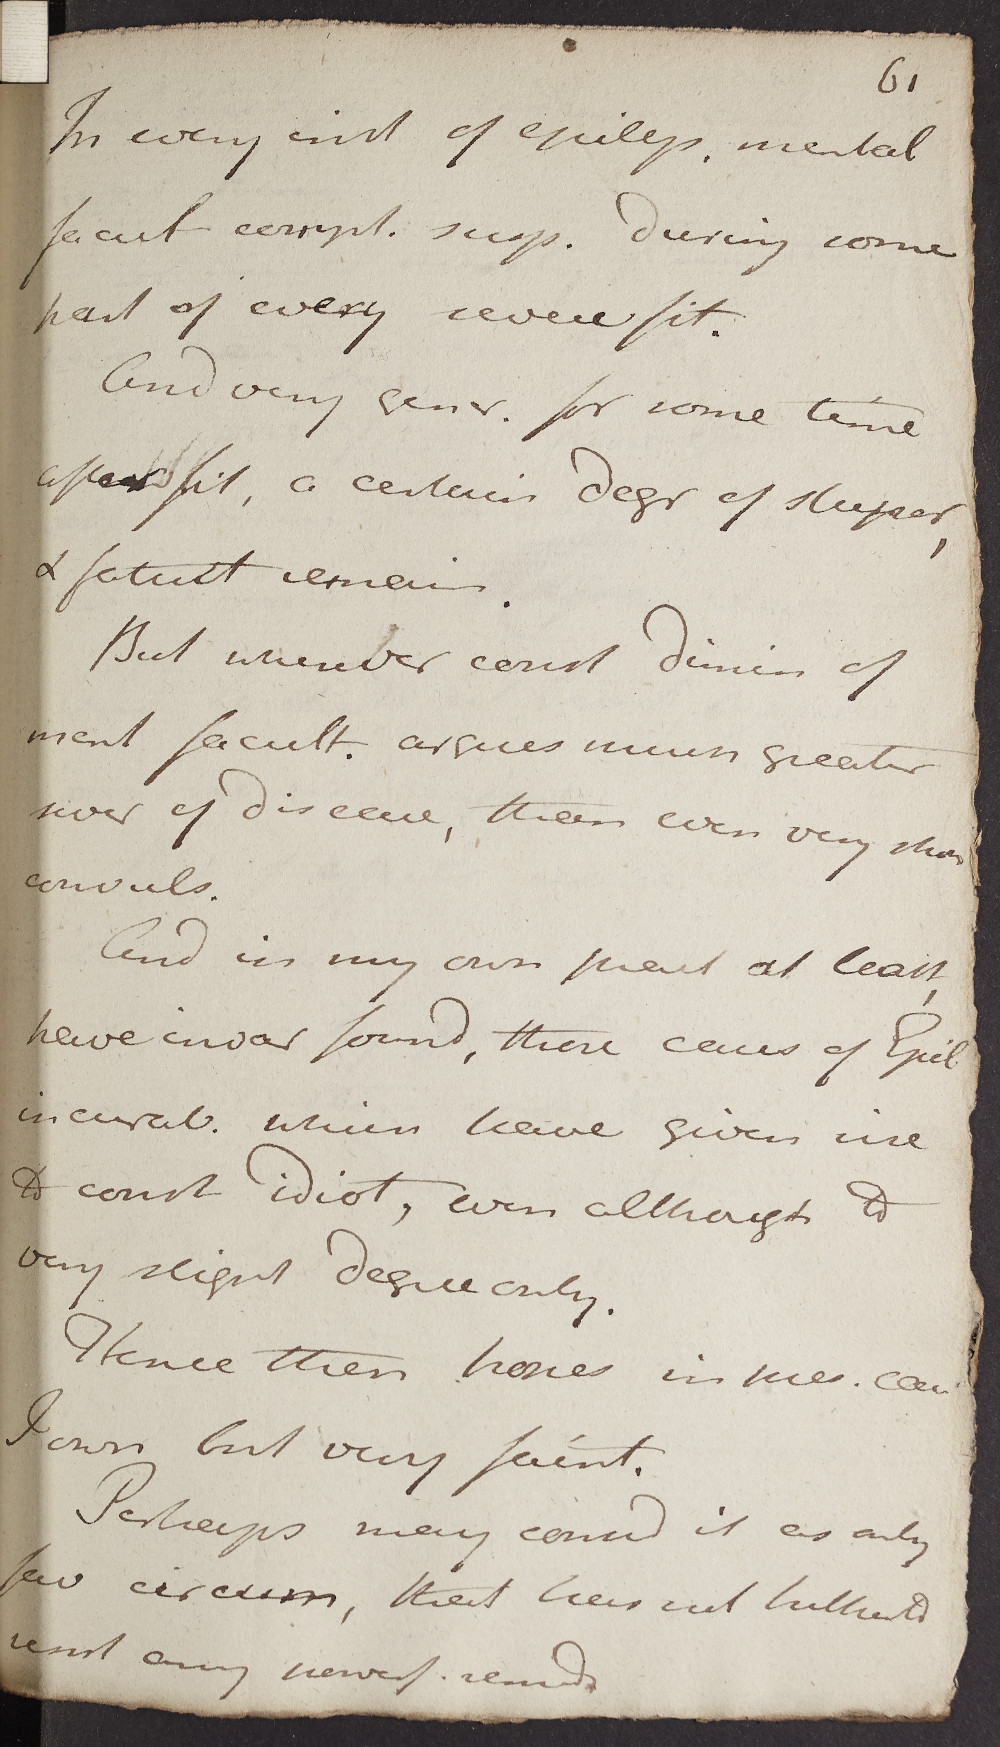 61
In every inst of epileps. mental
facult corrupt. susp. During some
part of every severe fit.
And very gener. for some time
after fit, a certain Degr of stupor,
& fatuit remain.
But wherever const Dimin of
ment facult. argues much greater
of Disease, than even very
convuls.
And in my own pract at least,
have invar found, those cases of Epil
incurab. which have given rise
to const idiot, even although to
very slight Degree only.
Hence then hopes in pres. case
I own but very faint.
Perhaps may consid it as only
fav circum, that has not hitherto
any powerf. remed